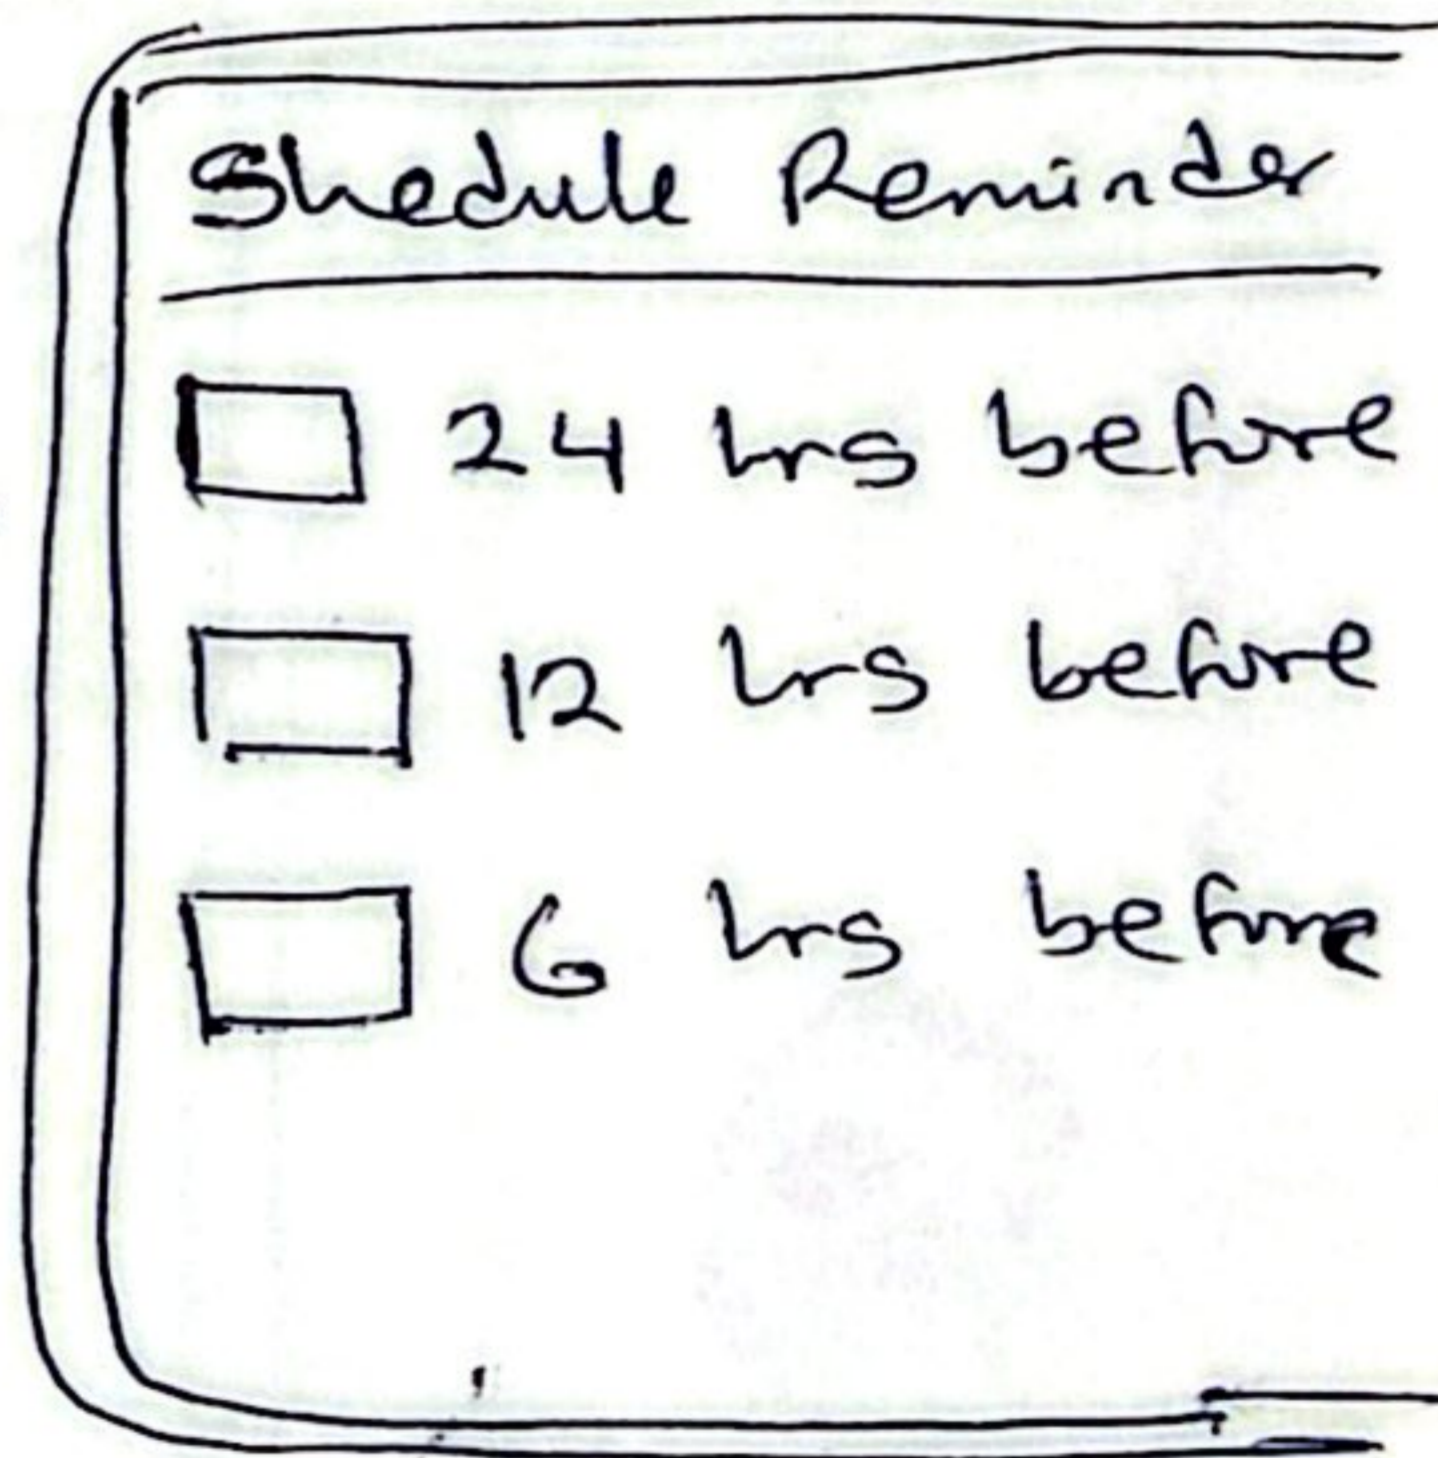 Shedule Reminder
24 hrs before
12 hrs before
6 hrs before